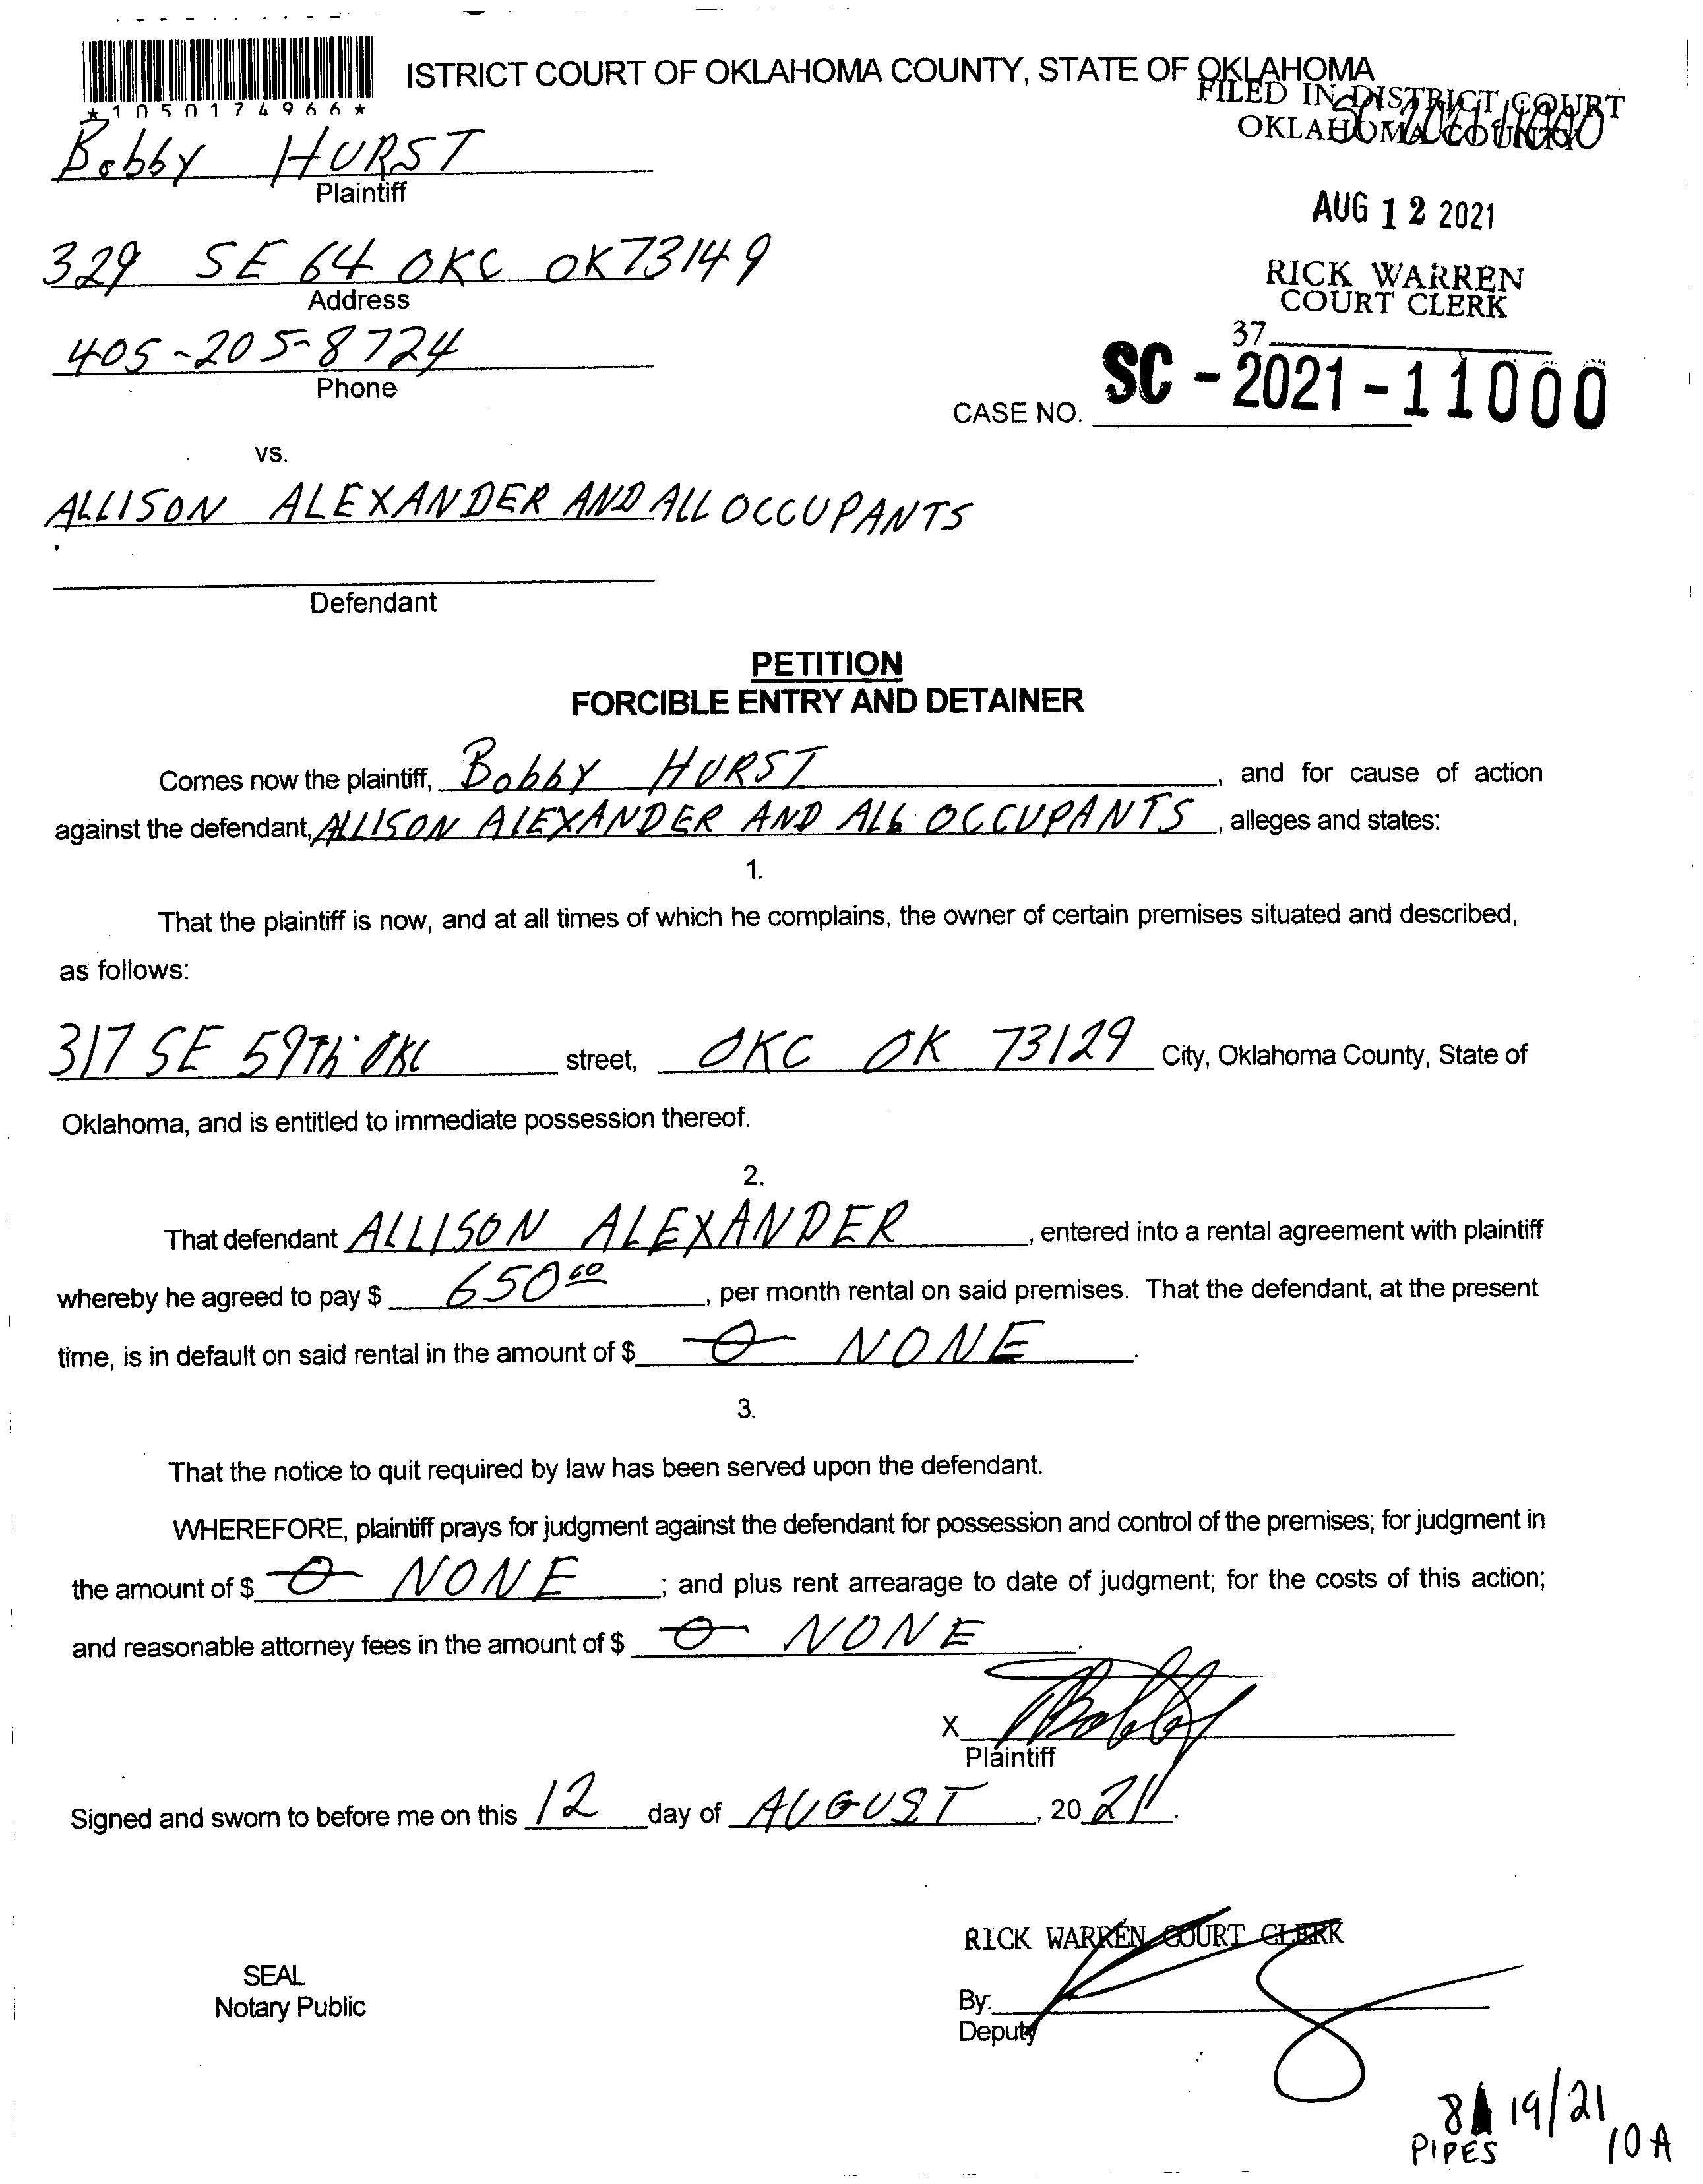 ISTRICT COURT OF OKLAHOMA COUNTY, STATE OF OKLAHOMA
*1050174966*
FILED IN DISTRICT COURT
OKLAHOMA COUNTY
SC-2021-11000
Bobby HURST
Plaintiff
AUG 12 2021
329 SE 64 OKC OK 73149
Address
RICK WARREN
COURT CLERK
405-205-8724
Phone
37
CASE NO. SC-2021-11000
vs.
ALLISON ALEXANDER AND ALL OCCUPANTS
Defendant
PETITION
FORCIBLE ENTRY AND DETAINER
Comes now the plaintiff, Bobby HURST, and for cause of action
against the defendant, ALLISON ALEXANDER AND ALL OCCUPANTS, alleges and states:
1.
That the plaintiff is now, and at all times of which he complains, the owner of certain premises situated and described,
as follows:
317 SE 59Th OKC street, OKC OK 73129 City, Oklahoma County, State of
Oklahoma, and is entitled to immediate possession thereof.
2.
That defendant ALLISON ALEXANDER, entered into a rental agreement with plaintiff
whereby he agreed to pay $ 650 00, per month rental on said premises. That the defendant, at the present
time, is in default on said rental in the amount of $ 0 NONE.
3.
That the notice to quit required by law has been served upon the defendant.
WHEREFORE, plaintiff prays for judgment against the defendant for possession and control of the premises; for judgment in
the amount of $ 0 NONE; and plus rent arrearage to date of judgment; for the costs of this action;
and reasonable attorney fees in the amount of $ 0 NONE.
X Bobby
Plaintiff
Signed and sworn to before me on this 12 day of AUGUST, 20 21.
RICK WARREN COURT CLERK
SEAL
Notary Public
By:
Deputy
8 19/21
PIPES 10A